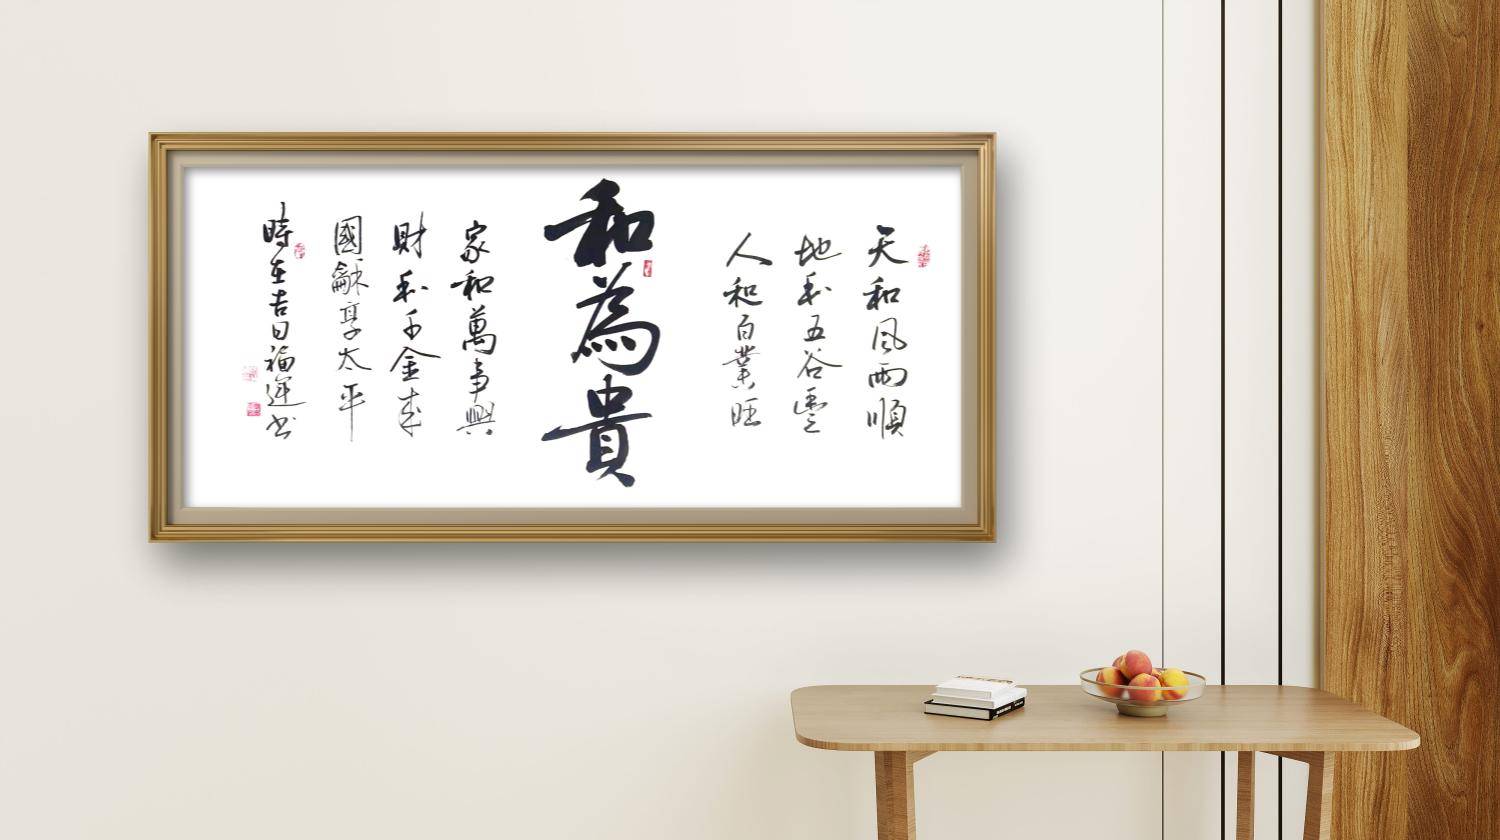 天和風雨順
地和五谷豐
人和百業旺
和為貴
家和萬事興
財和千金來
國龢享太平
時在吉日福運书